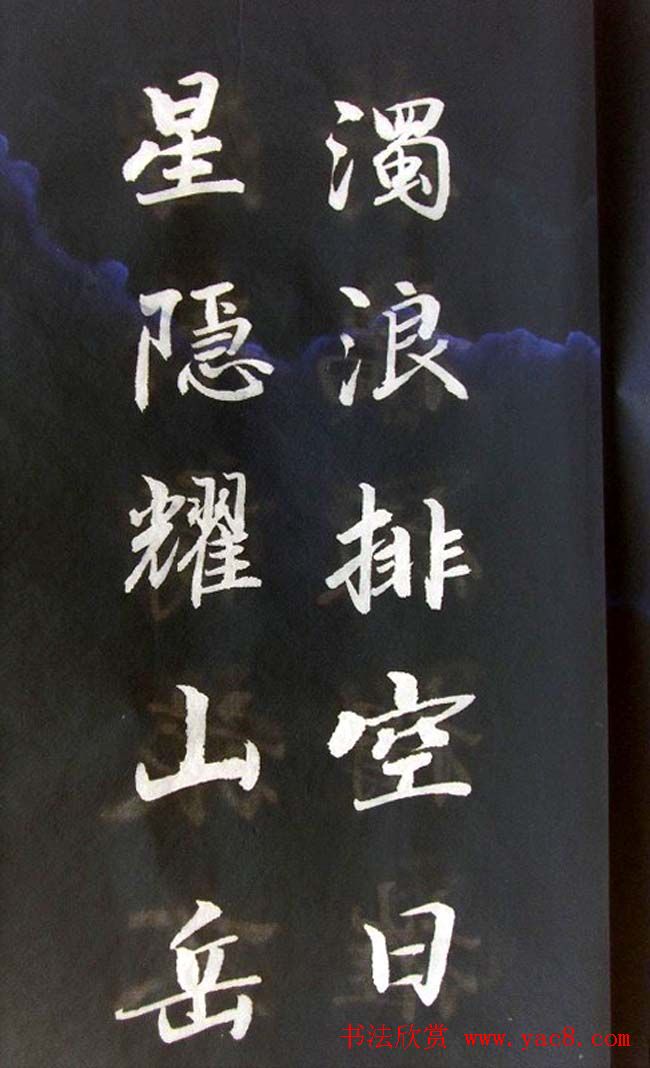 濁浪排空日
星隐耀山岳
书法欣赏 www.yac8.com